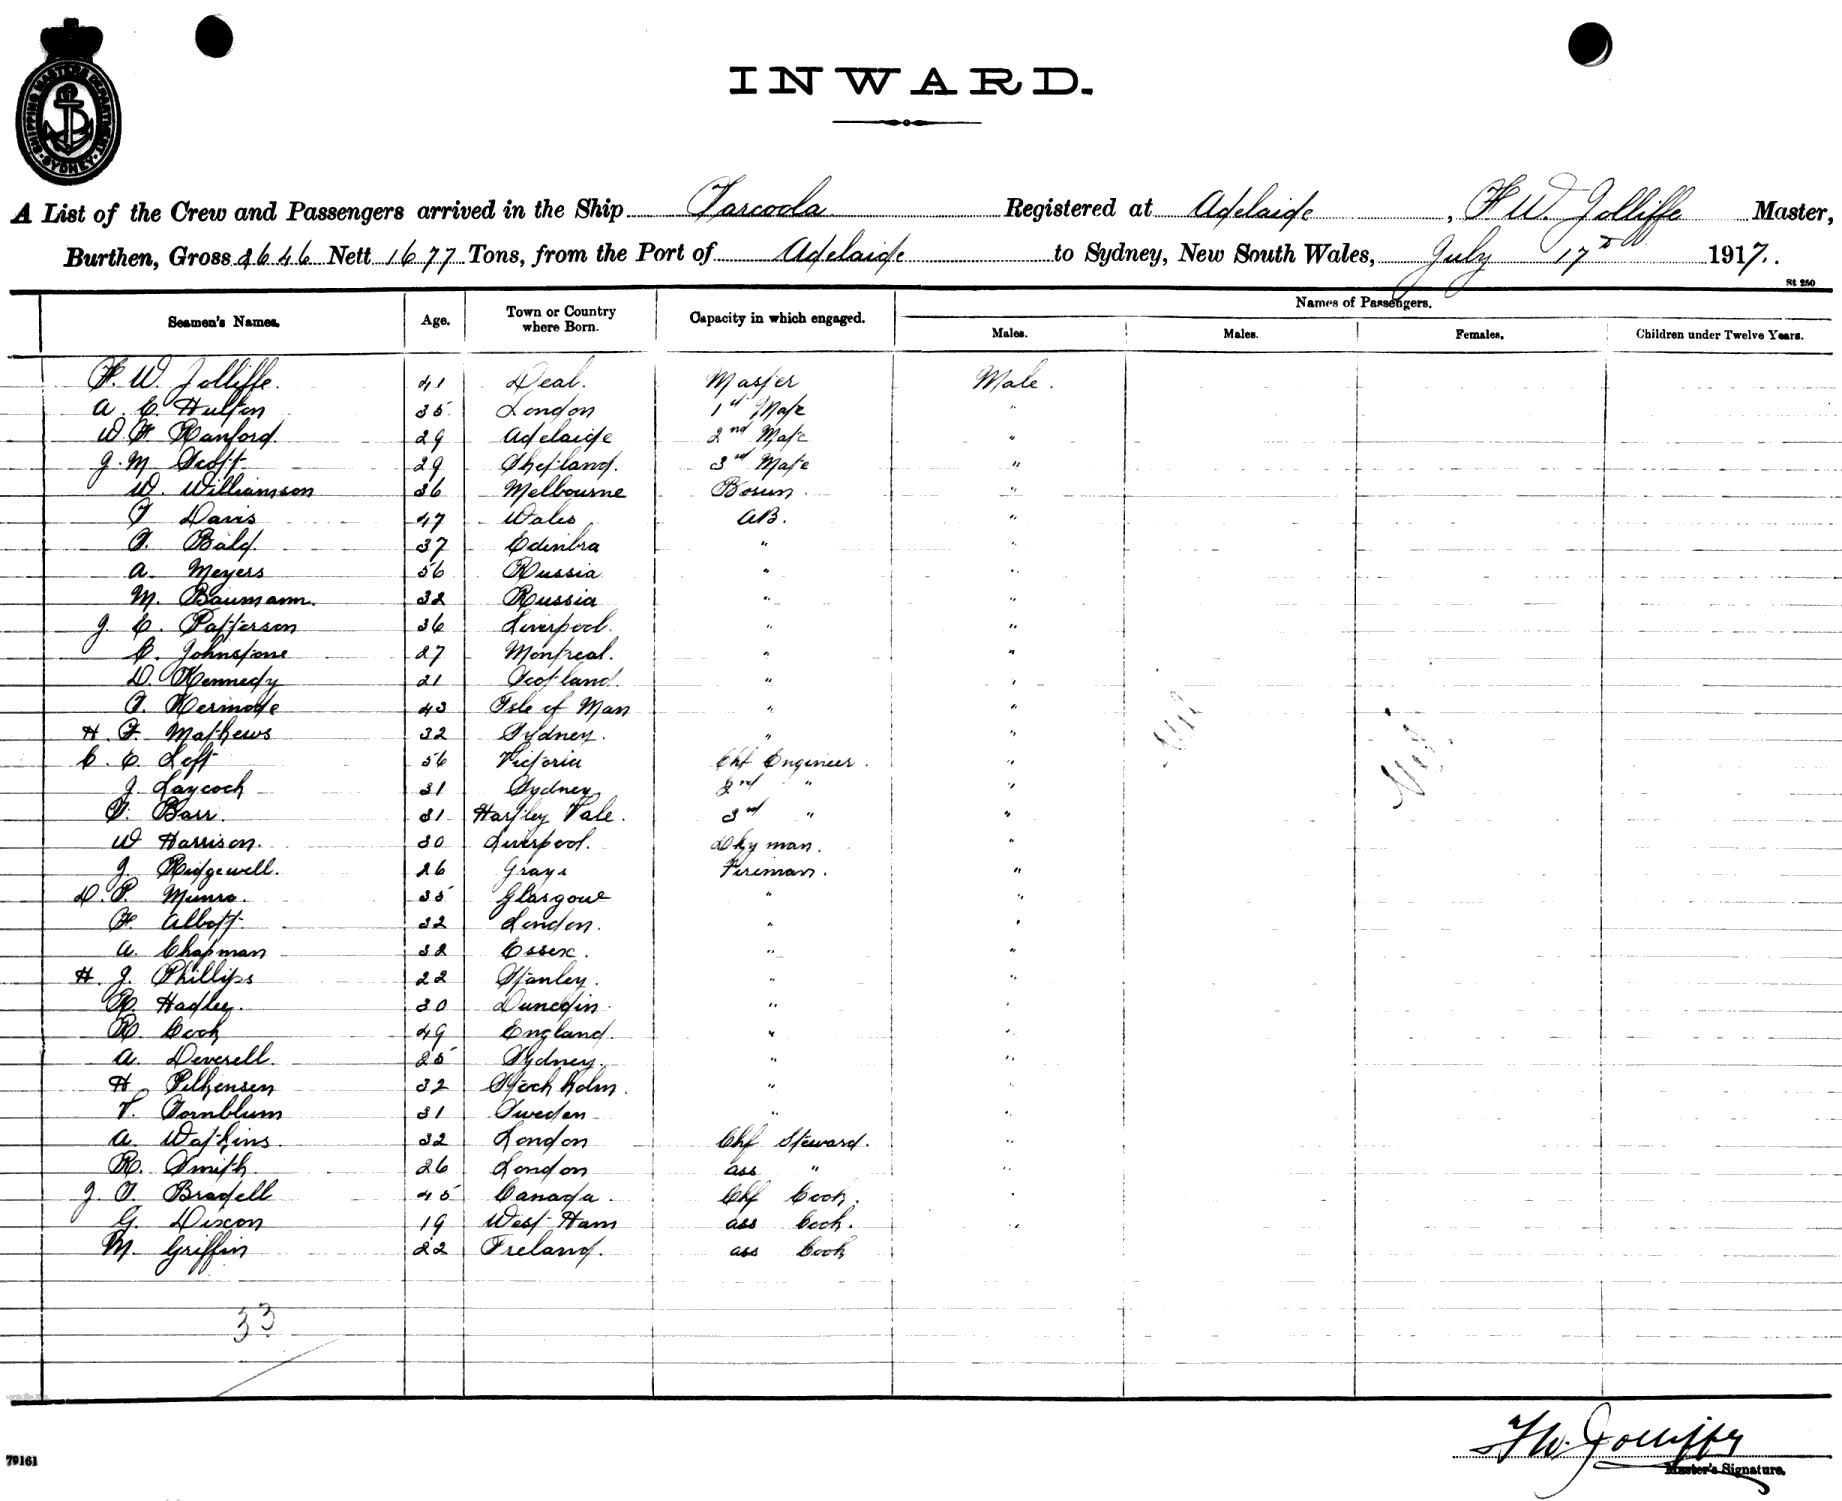 SHIPPING MASTERS DEPARTMENT
SYDNEY
INWARD.
A List of the Crew and Passengers arrived in the Ship Tarcoola Registered at Adelaide, F W. Jolliffe Master,
Burthen, Gross 2646 Nett 1677 Tons, from the Port of Adelaide to Sydney, New South Wales, July 17th 1917.
St 250
Seamen's Names. Age. Town or Country where Born. Capacity in which engaged. Names of Passengers.
Males. Males. Females. Children under Twelve Years.
F. W. Jolliffe. 41 Deal. Master Male.
A. C. Hulton 35 London 1st Mate "
W. F. Hanford. 29 Adelaide 2nd Mate "
J. M Scott 29 Shetland. 3rd Mate "
W. Williamson 36 Melbourne Bosun. "
T Davis 47 Wales AB. "
T. Bald. 37 Edinbra " "
A. Meyers 56 Russia " "
M. Baumann. 32 Russia " "
J. C. Patterson 36 Liverpool. " "
C. Johnstone 27 Montreal. " "
D. Kennedy 21 Scotland. " "
T. Kermode 43 Isle of Man " "
H. F. Mathews 32 Sydney. " "
C. C. Left 56 Victoria Chf Engineer. "
J. Laycock 31 Sydney 2nd " "
F. Barr. 31 Hartley Vale. 3rd " "
W Harrison. 30 Liverpool. Dky man. "
J. Ridgewell. 26 Grays Fireman. "
D. P. Munro. 35 Glasgow " "
F. Albott. 32 London. " "
A. Chapman 32 Essex. " "
H. J. Phillips 22 Stanley. " "
R. Hadley. 30 Dunedin. " "
R. Cook 49 England. " "
A. Deverell. 25 Sydney. " "
H. Pilkensen 32 Stockholm. " "
V. Tornblum 31 Sweden " "
A. Watkins. 32 London Chf Steward. "
R. Smith. 26 London ass " "
J. T. Bradell 45 Canada. Chf Cook. "
G. Dixon 19 West Ham ass Cook. "
M. Griffin 22 Ireland. ass Cook
Nil
Nil.
33
F W. Jolliffe
Master's Signature.
79161